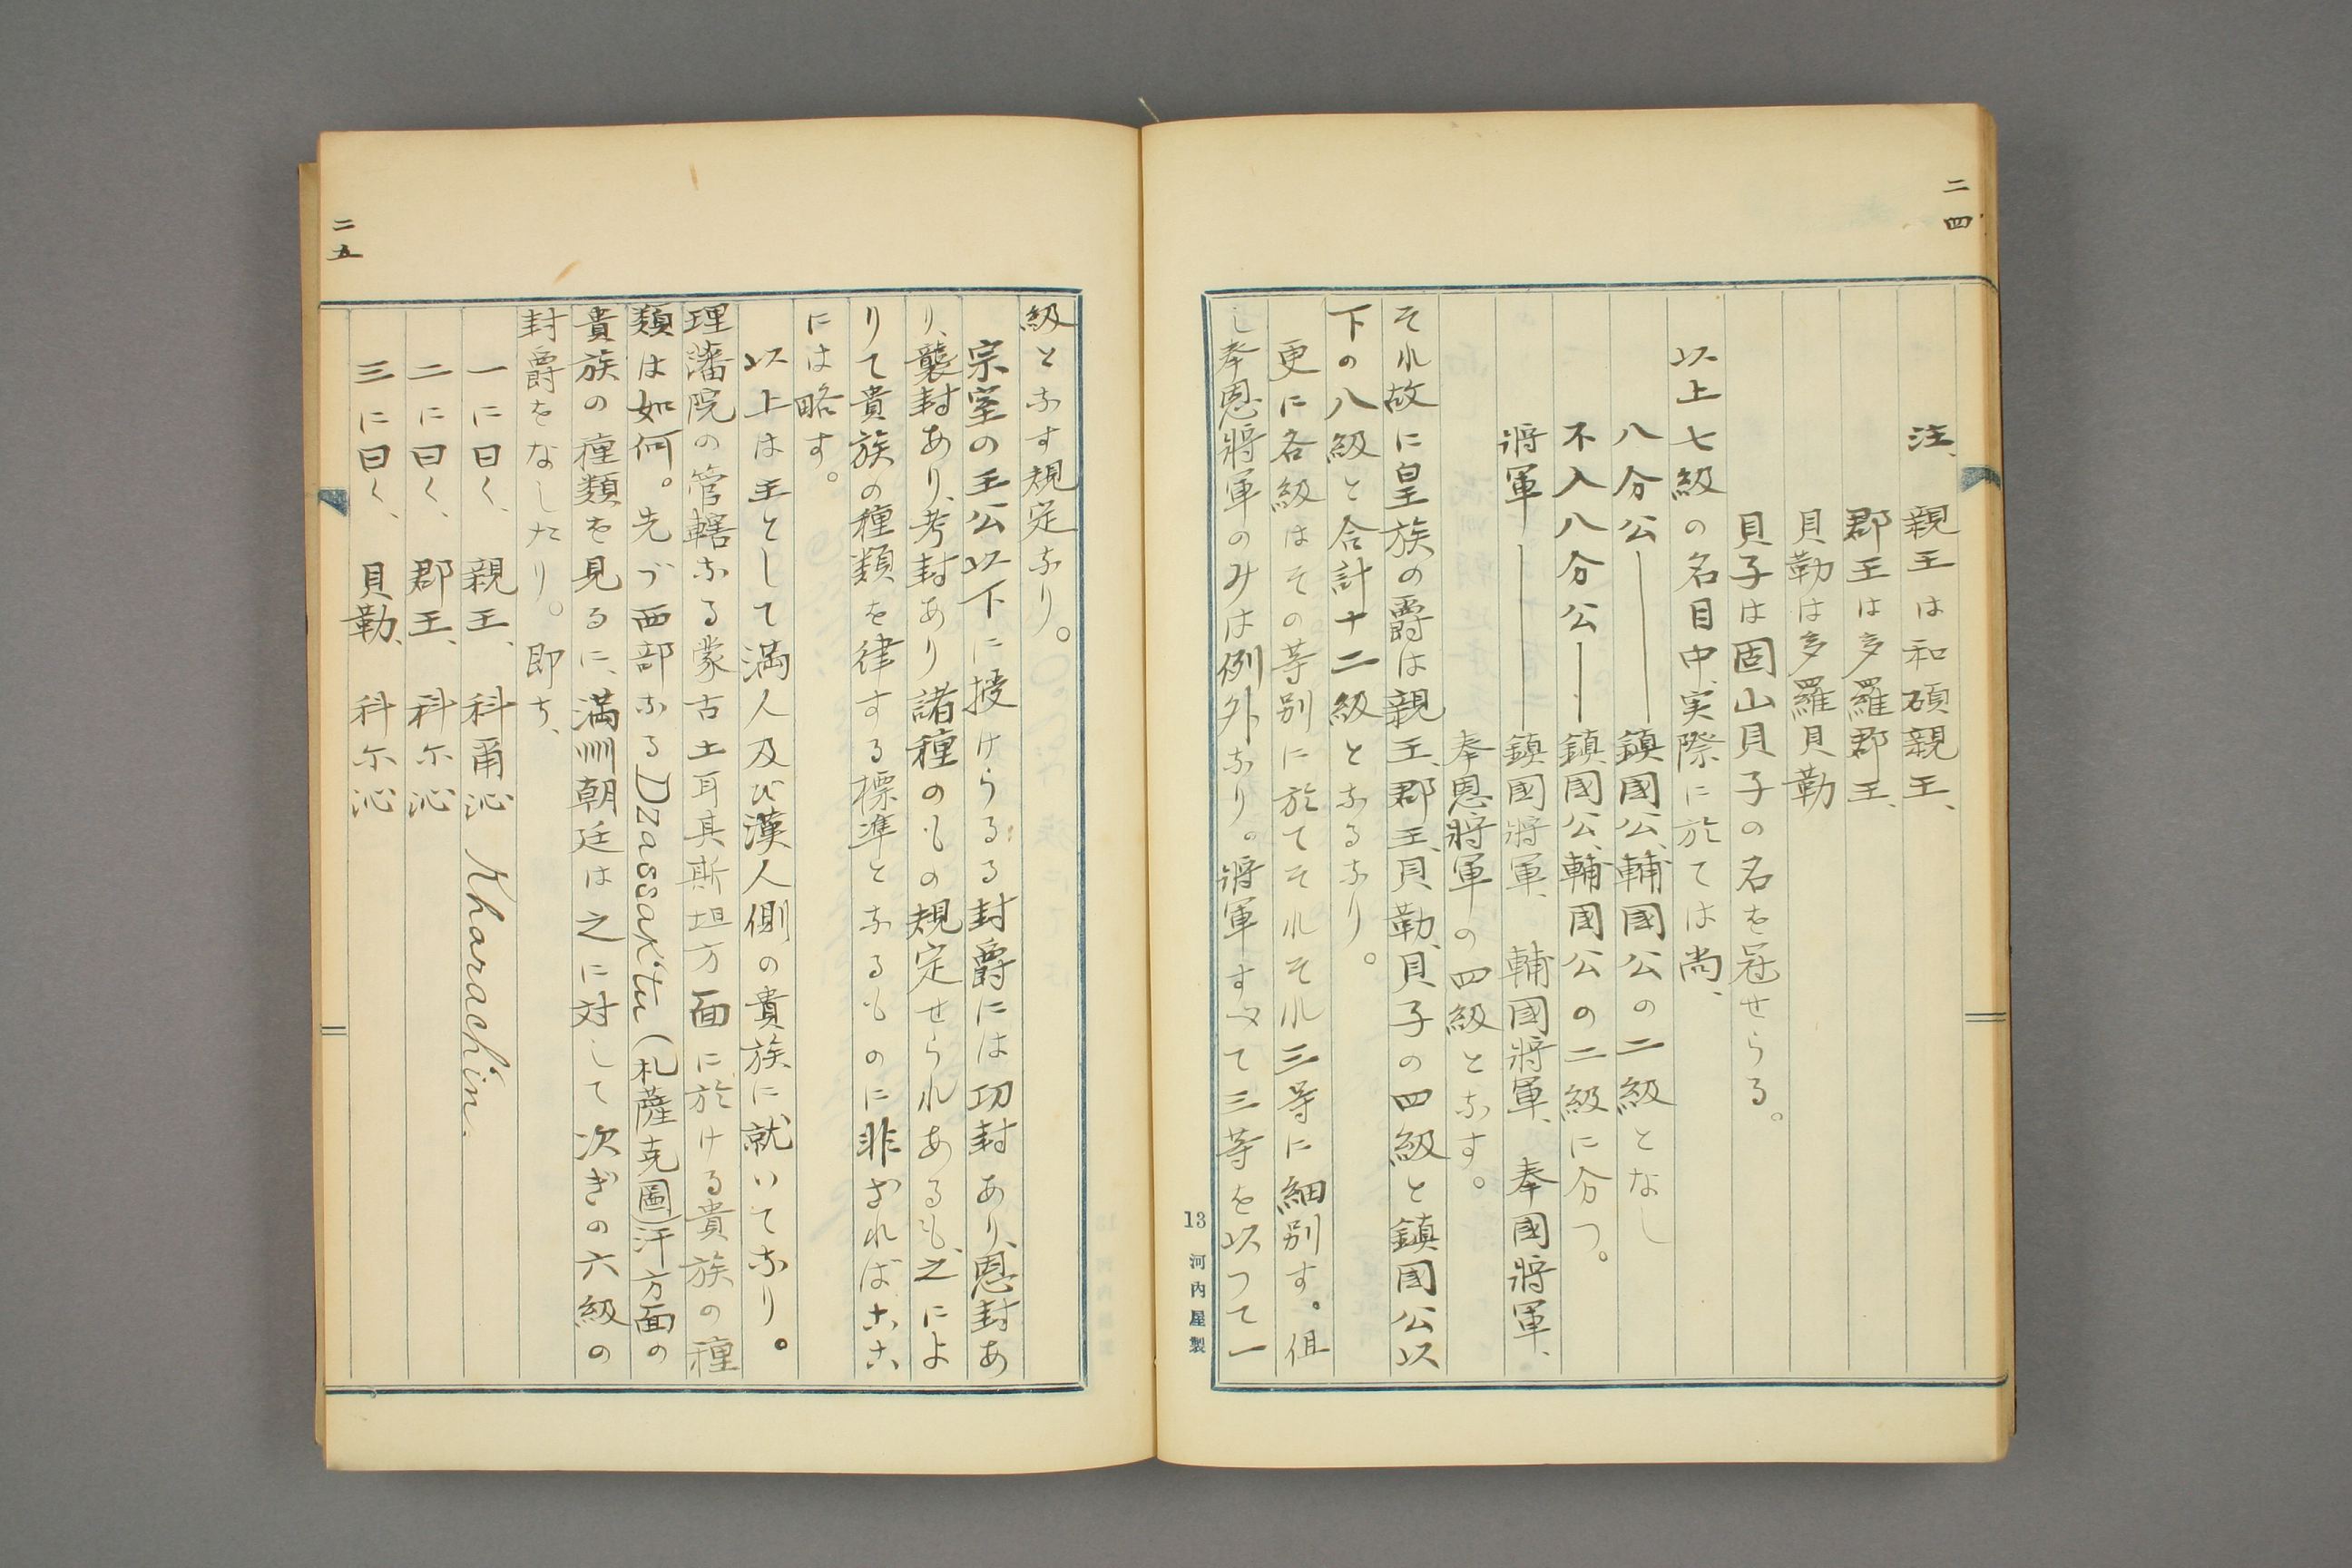 二四
注、親王は和碩親王、
郡王は多羅郡王、
貝勒は多羅貝勒
貝子は固山貝子の名を冠せらる。
以上七級の名目中、実際に於ては尚、
八分公――鎮國公、輔國公の二級となし
不入八分公――鎮國公、輔國公の二級に分つ。
將軍――鎮國將軍、輔國將軍、奉國將軍、
奉恩將軍の四級となす。
それ故に皇族の爵は親王、郡王、貝勒、貝子の四級と鎮國公以
下の八級と合計十二級となるなり。
更に各級はその等別に於てそれそれ三等に細別す。但
し奉恩將軍のみは例外なり。將軍すべて三等を以つて一
13 河内屋製
二五
級となす規定なり。
宗室の王公以下に授けらるる封爵には功封あり、恩封あ
り、襲封あり、考封あり諸種のもの規定せられあるも、之によ
りて貴族の種類を律する標準となるものに非ざればここ
には略す。
以上は主として満人及び漢人側の貴族に就いてなり。
理藩院の管轄なる蒙古土耳其斯坦方面に於ける貴族の種
類は如何。先づ西部なるDzassak'tu(札薩克圖)汗方面の
貴族の種類を見るに、満洲朝廷は之に対して次ぎの六級の
封爵をなしたり。即ち、
一に曰く、親王、科爾沁 Kharachin.
二に曰く、郡王、科尓沁
三に曰く、貝勒、科尓沁